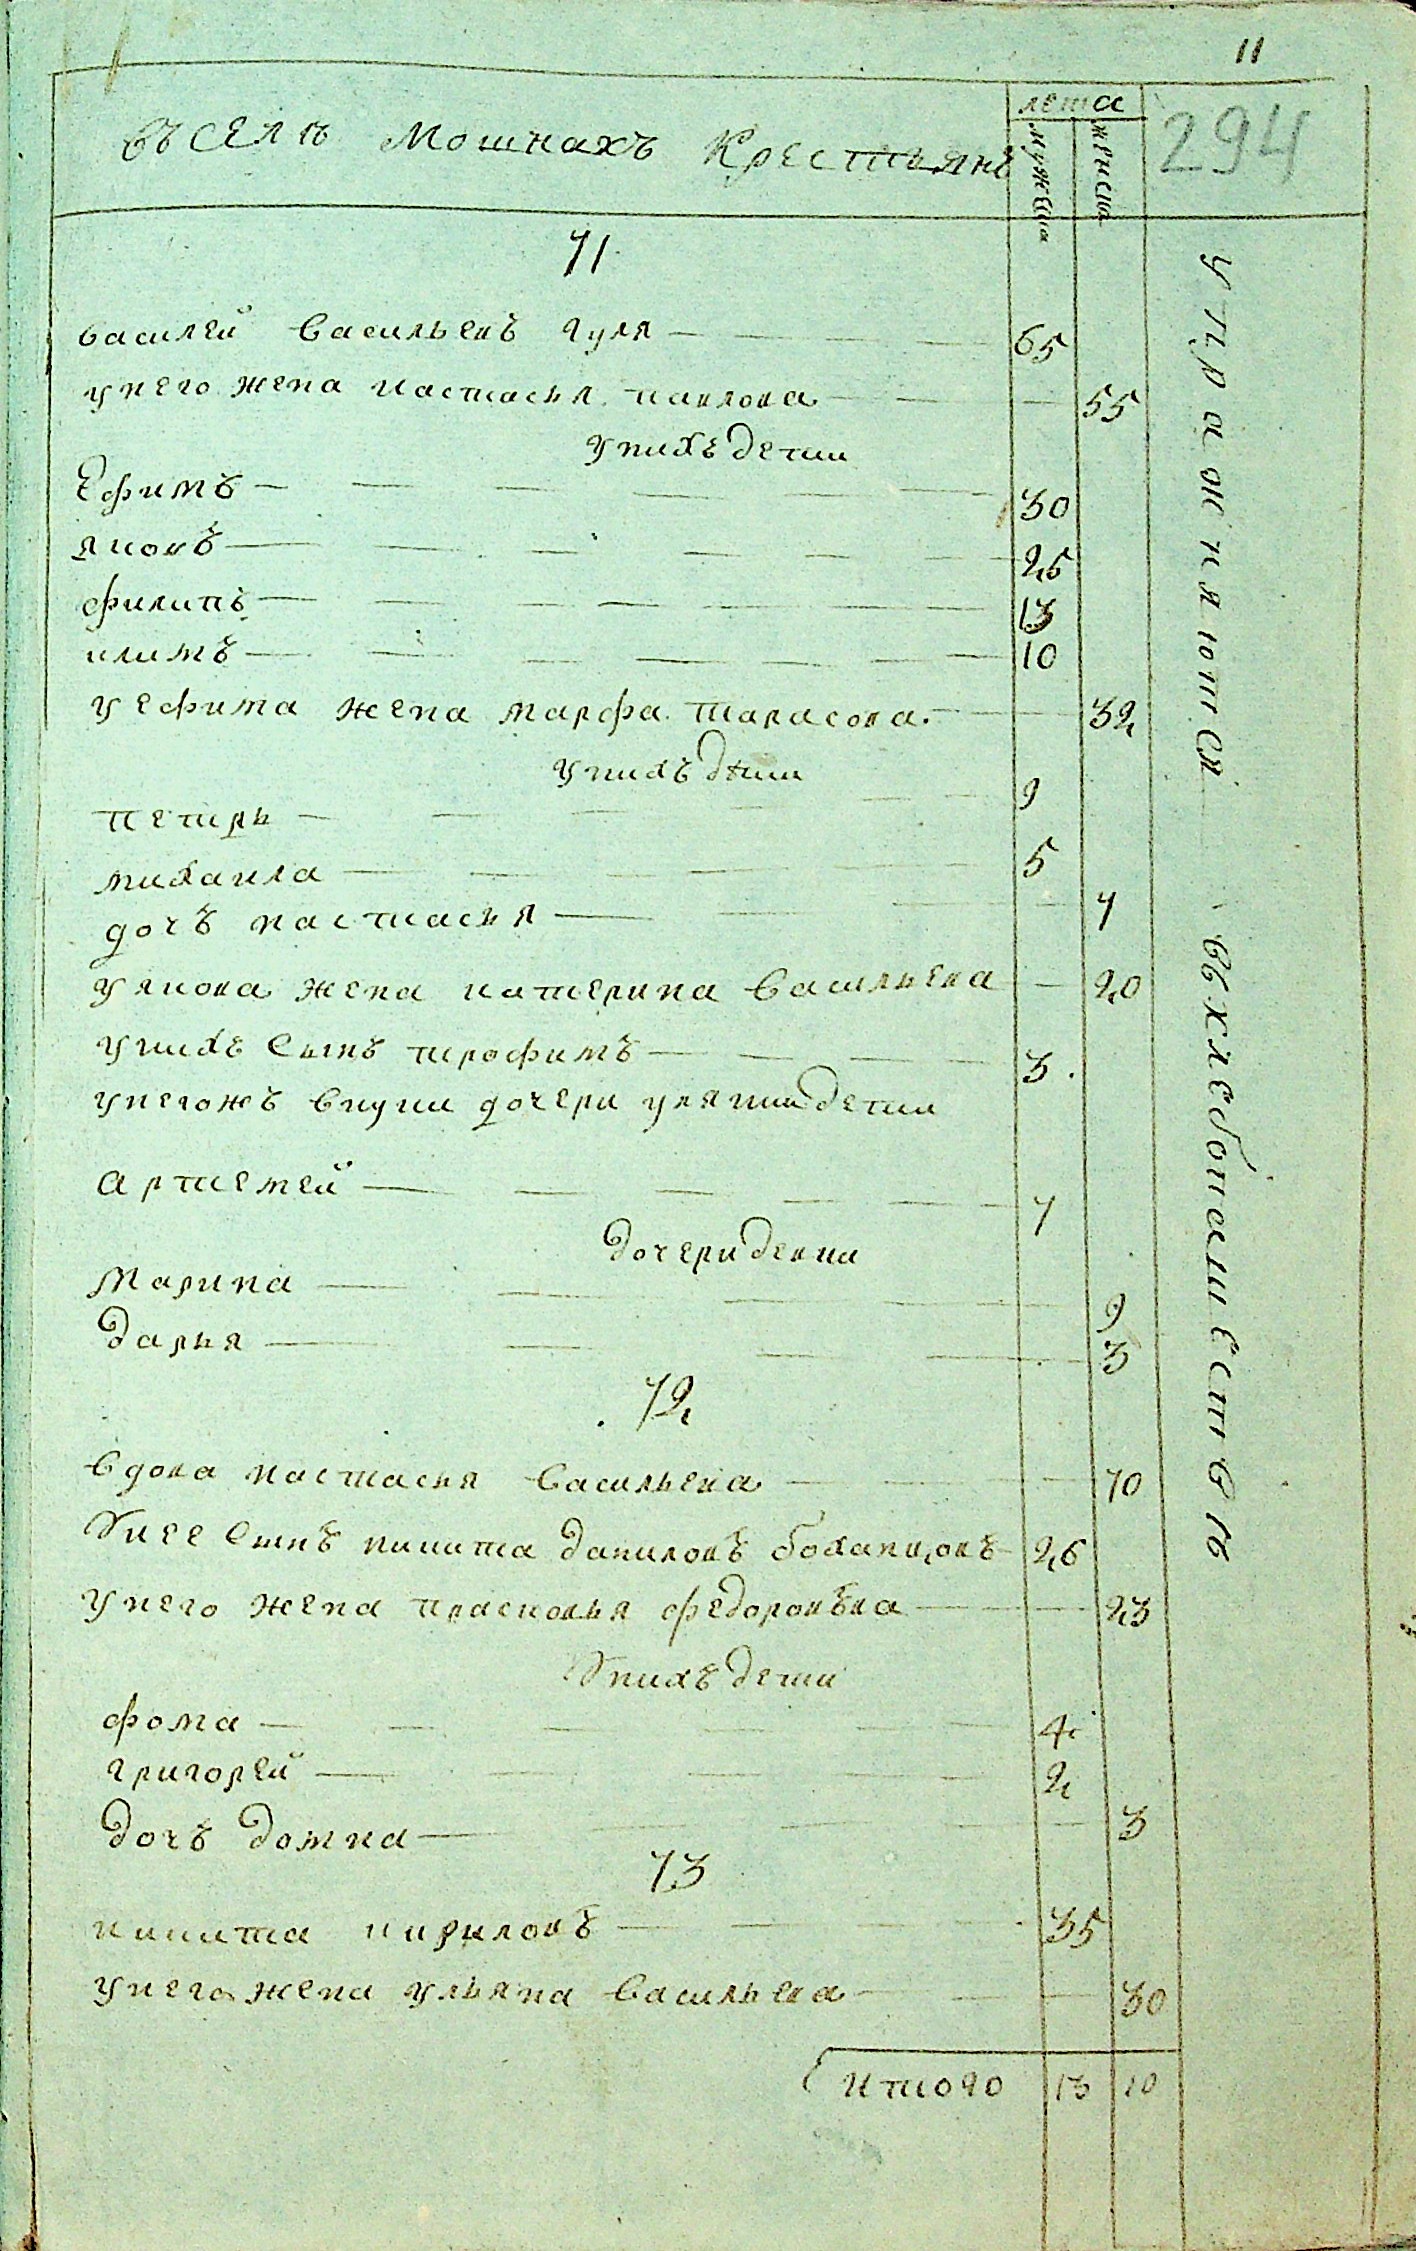 11
въ селѣ Мошнахъ Крестьянъ
лета
294
мужеска
женска
71
василей Васильевъ гуля 65
у него жена настасья павлова 55
у нихъ дети
Ефимъ 30
яковъ 25
филипъ 13
климъ 10
у ефима жена марфа тарасова 32
у нихъ дети
петръ 9
михаила 5
дочъ настасья 7
у якова жена катерина васильева 20
у нихъ сынъ трофимъ 3
у негожъ внуки дочери уляни дети
артемей 7
дочери девки
Марина 9
Дарья 3
72
вдова настасья васильева 70
У нее сынъ никита даниловъ боханцовъ 26
у него жена прасковья федоровъна 23
У нихъ дети
фома 4
григорей 2
дочъ домна 3
73
никита кириловъ 35
у него жена ульяна васильева 30
итого 13 10
упражняются въ хлебопашествѣ